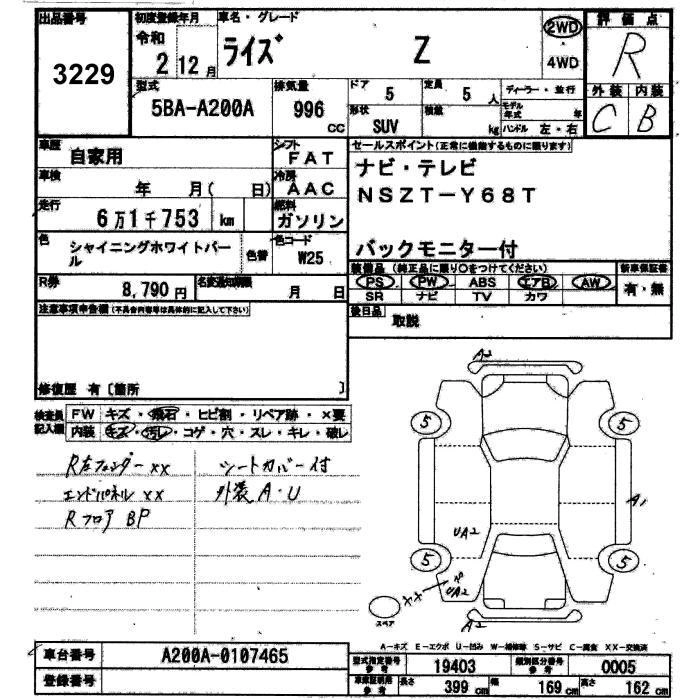 出品番号 3229
初度登録年月 令和 2年 12月
車名・グレード ライズ Z
2WD・4WD
評価点 R
外装 C 内装 B
型式 5BA-A200A
排気量 996 CC
ドア 5
定員 5 人
形状 SUV
積載 kg
ディーラー・並行
モデル年式 年
ハンドル 左・右
車歴 自家用
シフト FAT
車検 年 月( 日)
冷房 AAC
走行 6万1千753 km
燃料 ガソリン
色 シャイニングホワイトパール
色替
色コード W25
R券 8,790円
名変通知期限 月 日
セールスポイント(正常に機能するものに限ります)
ナビ・テレビ
NSZT-Y68T
バックモニター付
装備品 (純正品に限り○をつけてください)
PS PW ABS エアB AW
SR ナビ TV カワ
新車保証書 有・無
後日品 取説
注意事項申告欄(不具合内容等は具体的に記入して下さい)
修復歴 有〔箇所 〕
検査員記入欄
FW キズ・飛石・ヒビ割・リペア跡・×要
内装 キズ・汚レ・コゲ・穴・スレ・キレ・破レ
R左フェンダーxx シートカバー付
エンドパネルxx 外装A・U
Rフロア BP
A2
5 5
A1
UA2
5 5
UA2
スペア
A2
A-キズ E-エクボ U-凹み W-補修跡 S-サビ C-腐食 XX-交換済
車台番号 A200A-0107465
登録番号
型式指定番号 参考 19403
類別区分番号 参考 0005
車庫証明用 参考 長さ 399 cm 幅 169 cm 高さ 162 cm